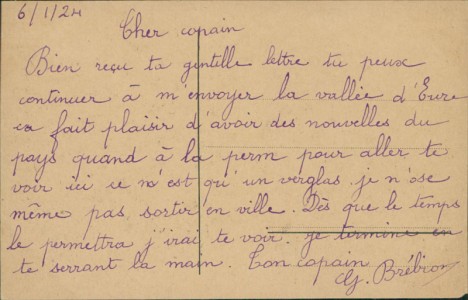 6/1/24
Cher copain
Bien reçu ta gentille lettre tu peux
continuer à m'envoyer la vallée d'Eure
ca fait plaisir d'avoir des nouvelles du
pays quand à la perm pour aller te
voir ici ce n'est qu'un verglas je n'ose
même pas sortir en ville. Dès que le temps
le permettra j'irai te voir. Je termine en
te serrant la main. Ton copain
G. Brébion